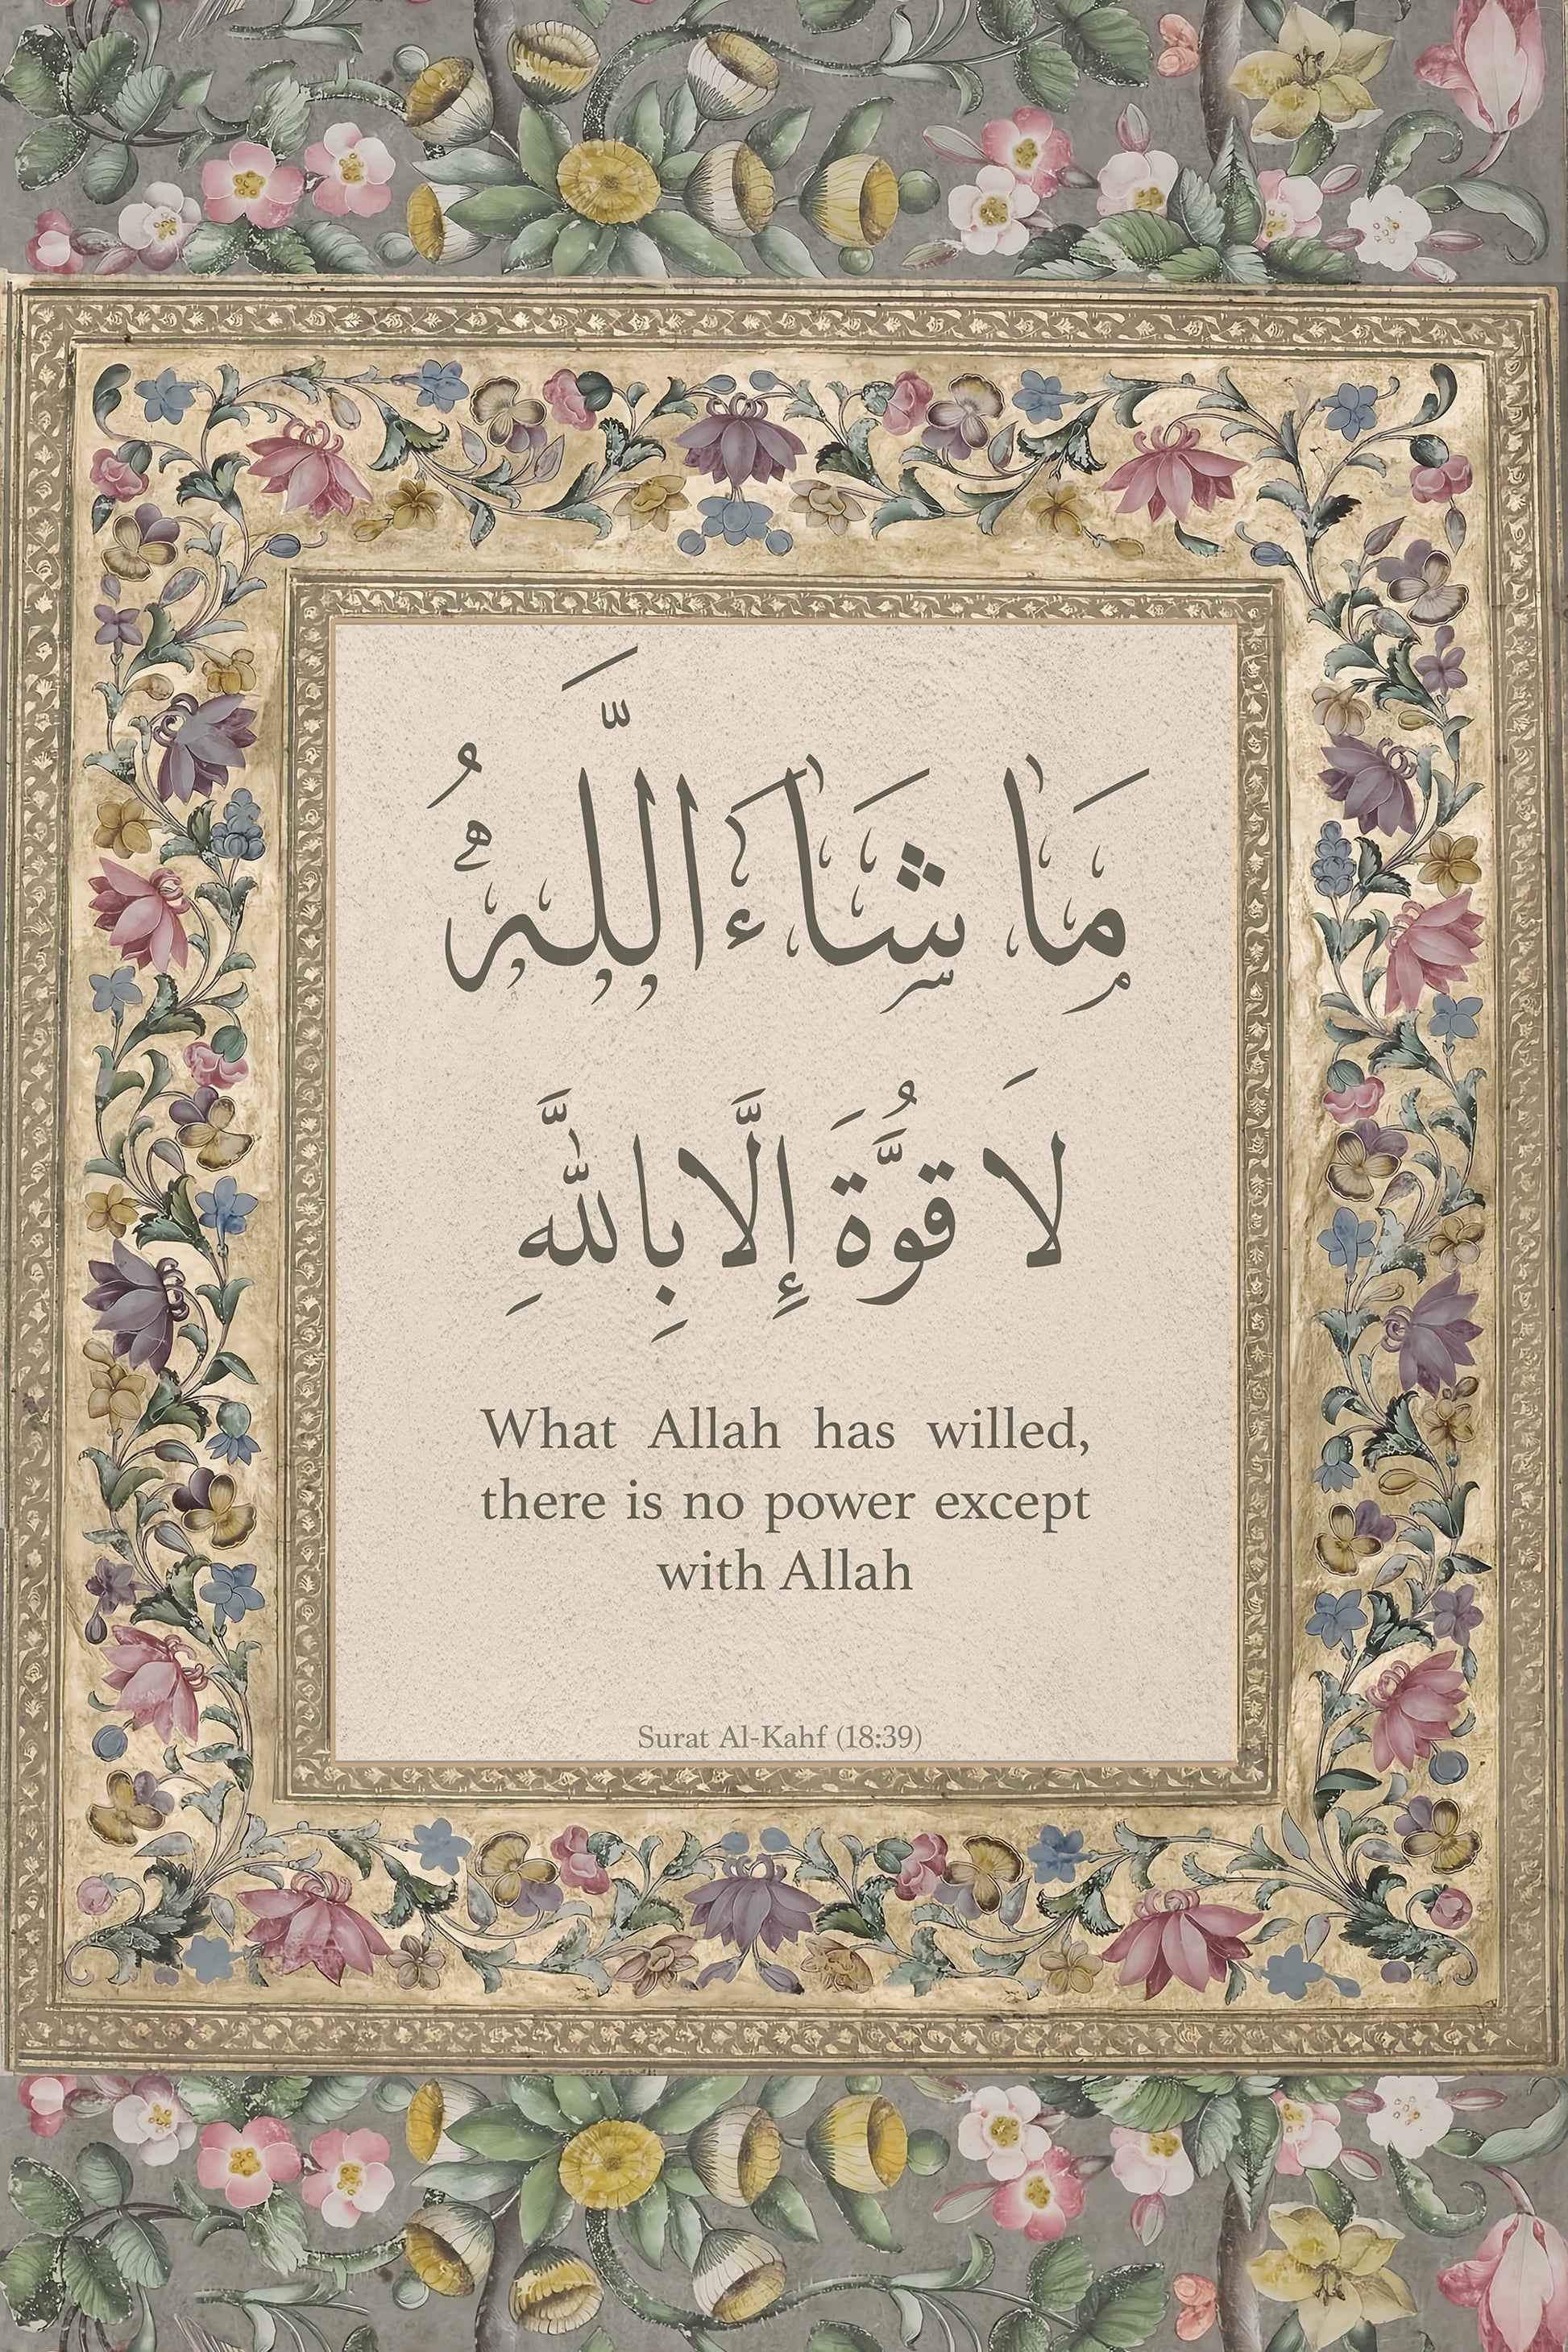 مَا شَاءَ اللَّهُ
لَا قُوَّةَ إِلَّا بِاللَّهِ
What Allah has willed,
there is no power except
with Allah
Surat Al-Kahf (18:39)